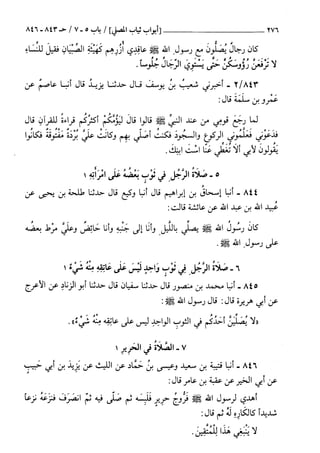 ٢٧٦ [أبواب ثياب المصلي] / باب ٥ - ٧ / حـ ٨٤٣ - ٨٤٦
كان رجالٌ يُصَلُّونَ مع رسول الله ﷺ عاقِدِي أُزُرِهم كَهَيْئَةِ الصِّبْيَانِ فقيل للنِّسَاءِ
لا تَرْفَعْنَ رُؤُوسَكُنَّ حَتَّى يَسْتَوِيَ الرِّجَالُ جُلُوساً.
٢/٨٤٣ - أخبرني شعيبُ بنُ يوسفَ قال حدثنا يزيدُ قال أنبأ عاصمٌ عن
عَمْرو بنِ سَلَمَةَ قال:
لما رجع قومي من عند النبيِّ ﷺ قالوا قال لِيَؤُمَّكُمْ أكثرُكُم قراءةً للقرآنِ قال
فدَعَوْني فعَلَّمُونِي الركوعَ والسجودَ فكنتُ أصلي بهم وكانتْ عليَّ بُرْدَةٌ مَفْتُوقَةٌ فكانُوا
يَقُولونَ لأبي ألاَ تُغَطِّي عَنَّا اسْتَ ابْنِكَ.
٥ - صَلاَةُ الرَّجُلِ في ثَوْبٍ بَعْضُهُ عَلى امْرَأَتِهِ ١
٨٤٤ - أنبأ إسحاقُ بن إبراهيم قال أنبأ وكيع قال حدثنا طلحة بن يحيى عن
عُبيد الله بن عبد الله عن عائشة قالت:
كان رسُولُ الله ﷺ يصلِّي بالليلِ وأنَا إلى جَنْبِهِ وأنَا حَائِضٌ وعليَّ مِرْطٌ بعضُه
على رسولِ الله ﷺ.
٦ - صَلاةُ الرَّجُلِ في ثَوْبٍ وَاحِدٍ لَيْسَ عَلَى عَاتِقِهِ مِنْهُ شَيْءٌ ١
٨٤٥ - أنبأ محمد بن منصور قال حدثنا سفيان قال حدثنا أبو الزنادِ عن الأعرج
عن أبي هريرة قال: قال رسول الله ﷺ:
«لا يُصَلِّيَنَّ أحَدُكُم في الثوبِ الواحِدِ ليس على عاتقِه مِنْهُ شَيْءٌ».
٧ - الصَّلاةُ في الحَرِيرِ ١
٨٤٦ - أنبأ قتيبة بن سعيد وعيسى بنُ حَمَّاد عن الليث عن يزيدَ بن أبي حبيب
عن أبي الخير عن عقبة بن عامر قال:
أهدي لرسول الله ﷺ فَرُّوجُ حريرٍ فَلَبِسَه ثم صَلّى فيه ثمّ انصَرَفَ فنَزَعَهُ نزعاً
شديداً كالكارِهِ لَهُ ثم قال:
لا يَنْبَغِي هَذَا لِلْمُتَّقِينَ.